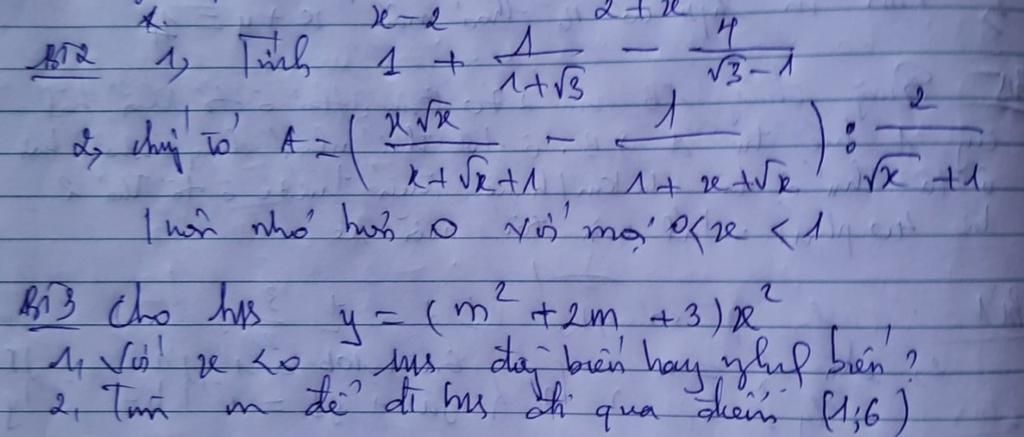 x-2 2+x
BT2 1, Tính 1 + 1/(1+√3) - 4/(√3-1)
2, chứ tỏ A = (x√x/(x+√x+1) - 1/(1+x+√x)) : 2/(√x+1)
luôn nhỏ hơn 0 với mọi 0<x<1
BT3 Cho hs y = (m² + 2m + 3)x²
1, Với x<0 hs đồng biến hay nghịch biến?
2, Tìm m để đt hs đi qua điểm (1;6)